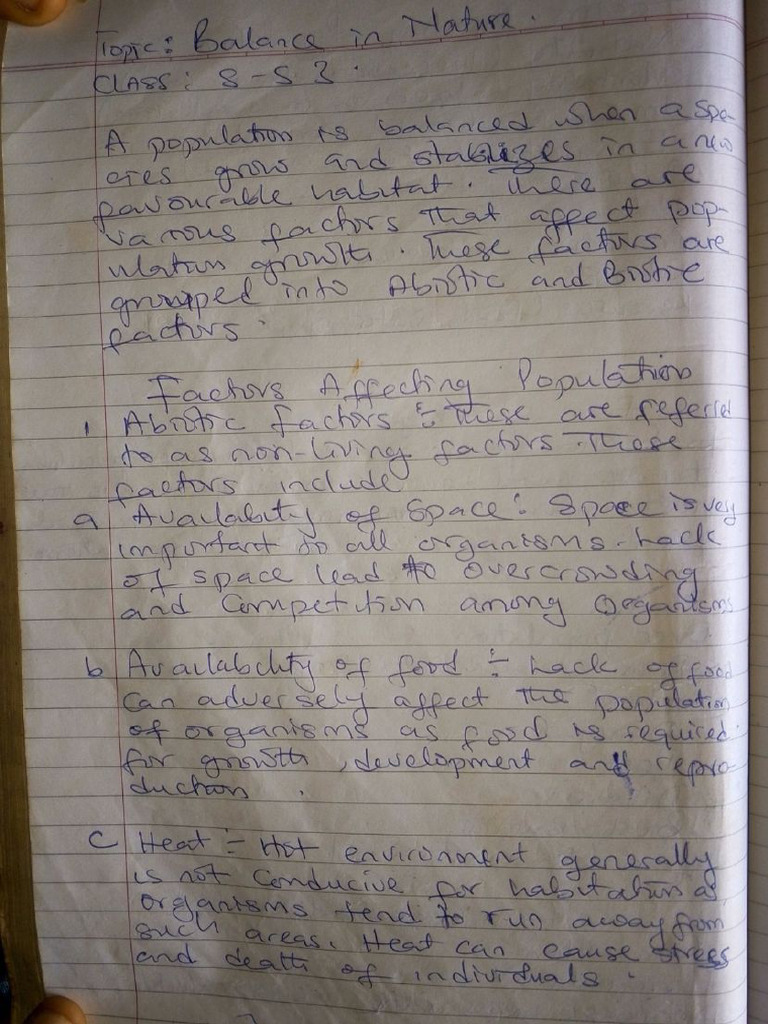 Topic: Balance in Nature.
CLASS: S-S 3.
A population is balanced when a spe-
cies grow and stabilizes in a new
favourable habitat. There are
various factors that affect pop-
ulation growth. These factors are
grouped into Abiotic and Biotic
factors.
Factors Affecting Population
1 Abiotic factors :- These are refered
to as non-living factors. These
factors include
a Availability of Space: Space is very
important to all organisms. Lack
of space lead to overcrowding
and Competition among Organisms
b Availability of food :- Lack of food
can adversely affect the population
of organisms as food is required
for growth, development and repro-
duction.
C Heat :- Hot environment generally
is not conducive for habitation as
organisms tend to run away from
such areas. Heat can cause stress
and death of individuals.